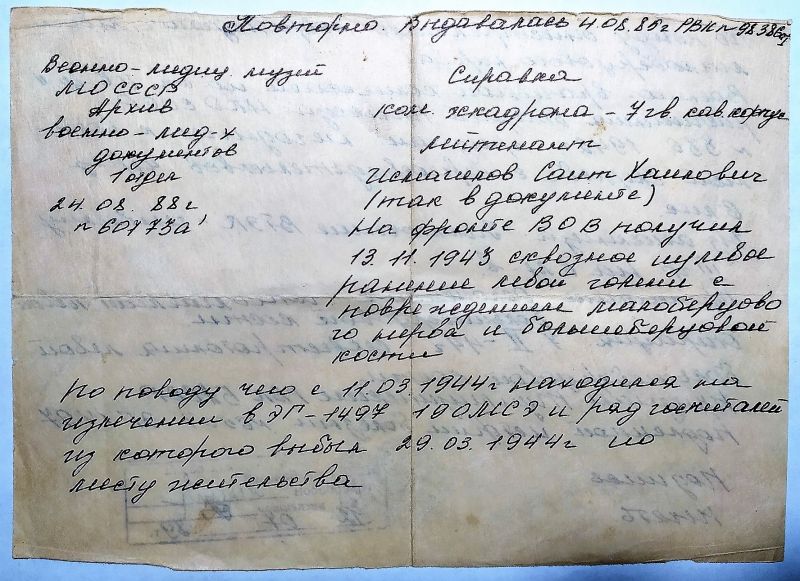 Повторно. Выдавалась 4.08.85г РВК №
Военно-медиц. музей
МО СССР
Архив
военно-мед-х
документов
1 отдел
24.08.88г
Справка
Ком. эскадрона - 7 гв. кав. корпус
лейтенант
Исмагилов Саит Хаилович
(так в документе)
На фронте ВОВ получил
13.11.1943 сквозное пулевое
ранение левой голени с
повреждением малоберцово
го нерва и большеберцовой
кости
По поводу чего с 11.03.1944г находился на
излечении в ЭГ-1497 190МСБ и ряд госпиталей
из которого выбыл 29.03.1944г по
месту жительства